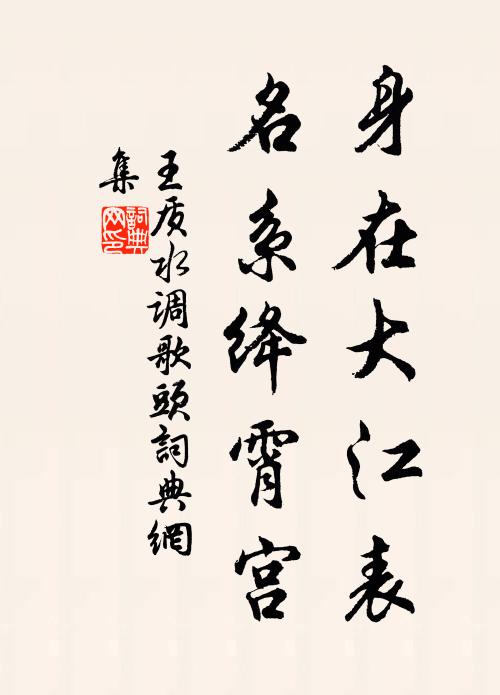 身在大江表
名系绛霄宫
王质水调歌头词典網
集
詞典
网印